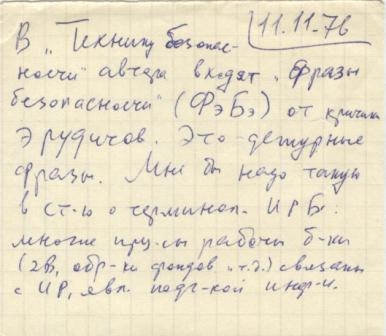 11.11-76
В „Технику безопас-
ности" автора входят „Фразы
безопасности" (ФэБэ) от критики
эрудитов. Это дежурные
фразы. Мне бы надо такую
в ст-ю о терминол. ИРБ:
многие пр-сы работы б-ки
(ЗВ, обр-ки фондов и т.д.) связаны
с ИР, явл. подг-кой инф-и.